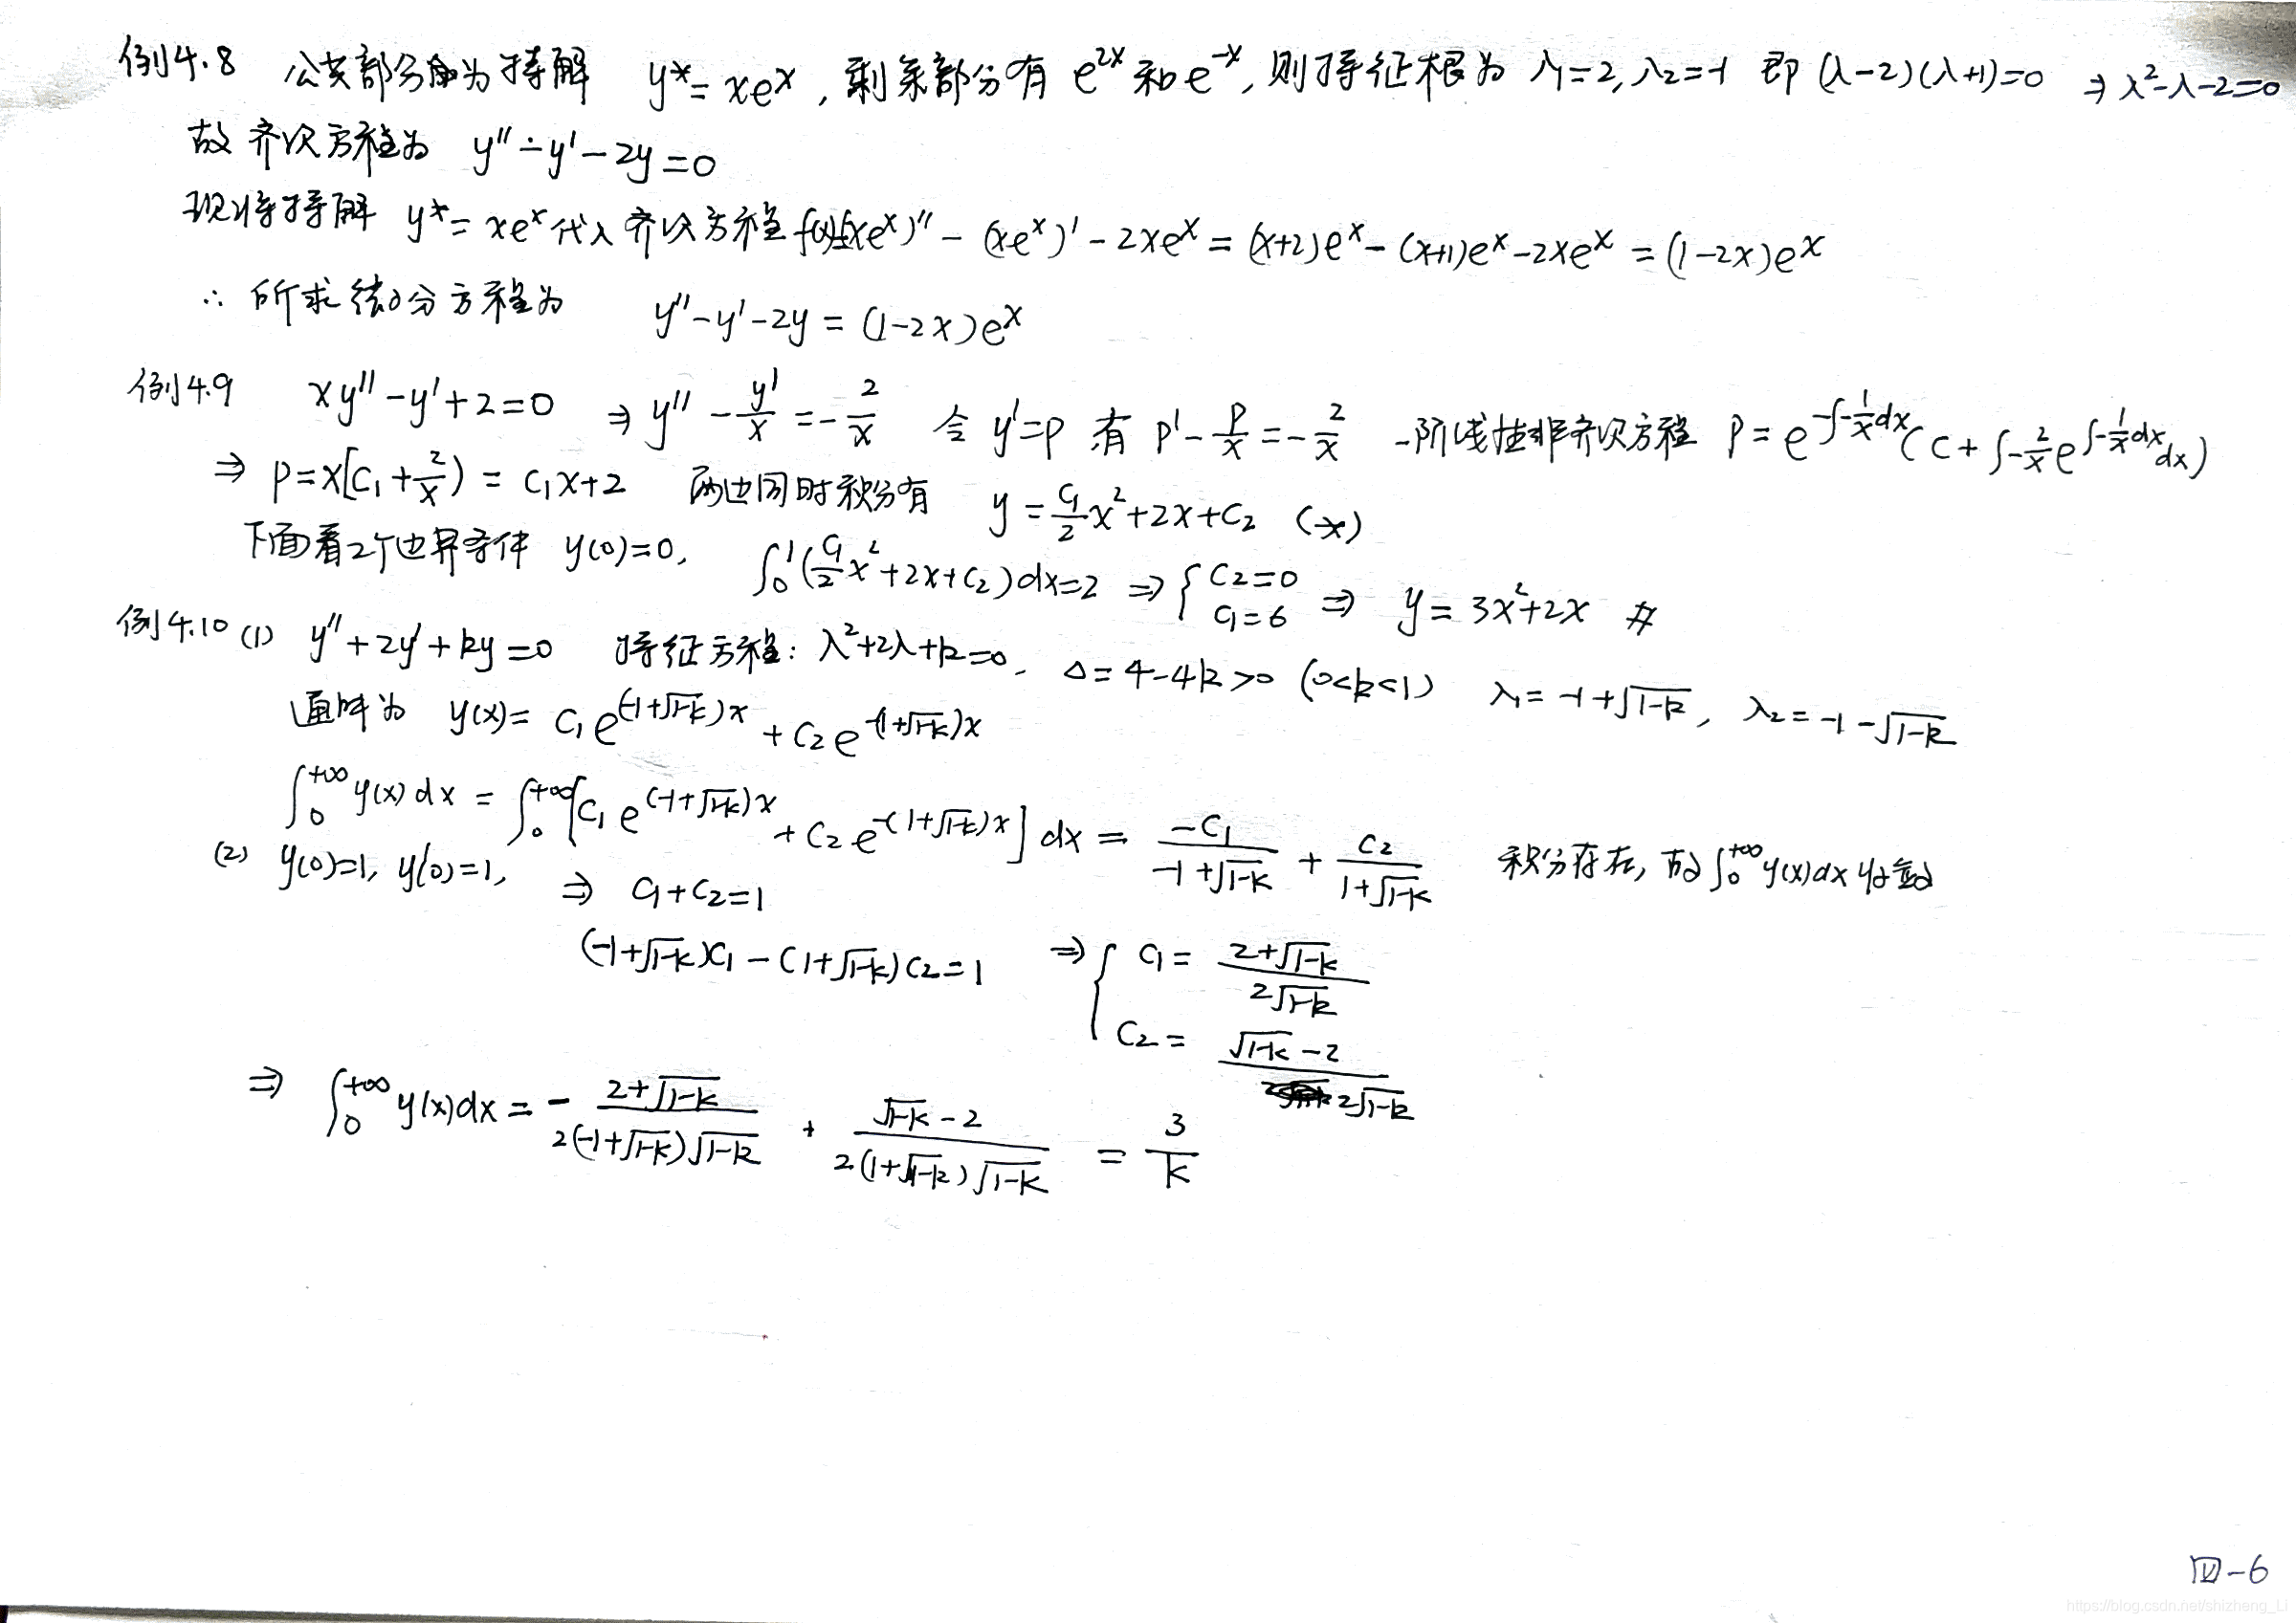 例4.8 公共部分为特解 y*=xe^x, 剩余部分有 e^{2x} 和 e^{-x}, 则特征根为 λ₁=2, λ₂=-1 即 (λ-2)(λ+1)=0 ⇒ λ²-λ-2=0
故齐次方程为 y''-y'-2y=0
现将特解 y*=xe^x 代入齐次方程 f(x)=(xe^x)''-(xe^x)'-2xe^x=(x+2)e^x-(x+1)e^x-2xe^x=(1-2x)e^x
∴ 所求微分方程为 y''-y'-2y=(1-2x)e^x
例4.9 xy''-y'+2=0 ⇒ y''-y'/x=-2/x 令 y'=p 有 p'-p/x=-2/x 一阶线性非齐次方程 p=e^{-∫-1/x dx}(C+∫-2/x e^{∫-1/x dx}dx)
⇒ p=x[C₁+2/x)=C₁x+2 两边同时积分有 y=C₁/2 x²+2x+C₂ (*)
下面看2个边界条件 y(0)=0, ∫₀¹(C₁/2 x²+2x+C₂)dx=2 ⇒ { C₂=0 C₁=6 ⇒ y=3x²+2x #
例4.10 (1) y''+2y'+ky=0 特征方程: λ²+2λ+k=0. Δ=4-4k>0 (0<k<1) λ₁=-1+√(1-k), λ₂=-1-√(1-k)
通解为 y(x)=C₁e^{(-1+√(1-k))x}+C₂e^{-(1+√(1-k))x}
∫₀^{+∞}y(x)dx=∫₀^{+∞}[C₁e^{(-1+√(1-k))x}+C₂e^{-(1+√(1-k))x}]dx=-C₁/(-1+√(1-k))+C₂/(1+√(1-k)) 积分存在, 故∫₀^{+∞}y(x)dx 收敛
(2) y(0)=1, y'(0)=1, ⇒ C₁+C₂=1
(-1+√(1-k))C₁-(1+√(1-k))C₂=1 ⇒ { C₁=(2+√(1-k))/(2√(1-k))
C₂=(√(1-k)-2)/(2√(1-k))
⇒ ∫₀^{+∞}y(x)dx=-(2+√(1-k))/(2(-1+√(1-k))√(1-k))+(√(1-k)-2)/(2(1+√(1-k))√(1-k))=3/k
四-6
https://blog.csdn.net/shizheng_Li